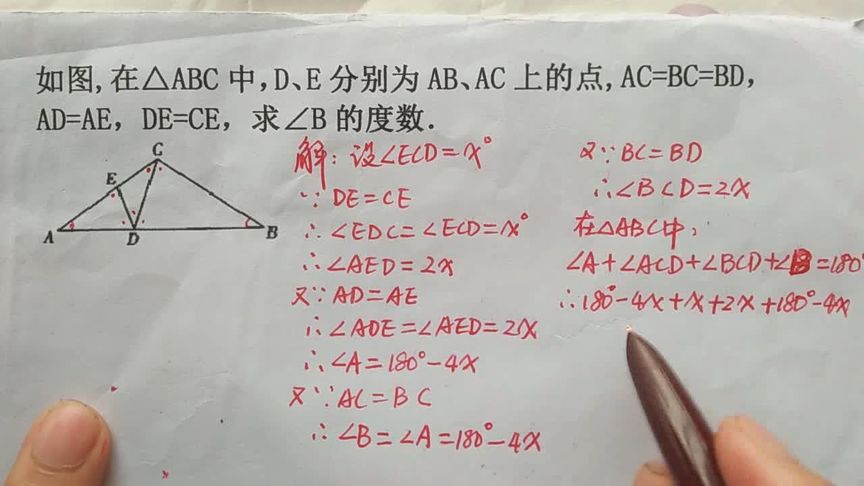 如图,在△ABC中,D、E分别为AB、AC上的点,AC=BC=BD,
AD=AE，DE=CE，求∠B的度数.
C
E
A
D
B
解：设∠ECD=x°
∵DE=CE
∴∠EDC=∠ECD=x°
∴∠AED=2x
又∵AD=AE
∴∠ADE=∠AED=2x
∴∠A=180°-4x
又∵AC=BC
∴∠B=∠A=180°-4x
又∵BC=BD
∴∠BCD=2x
在△ABC中,
∠A+∠ACD+∠BCD+∠B=180°
∴180°-4x+x+2x+180°-4x